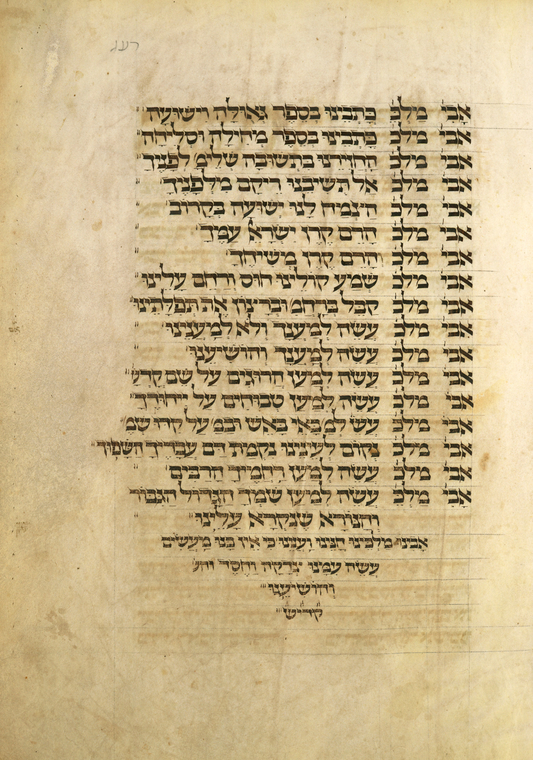 רעג
אבי' מלכ' כתבינו בספר גאולה וישועה
אבי' מלכ' כתבינו בספר מחילה וסליחה
אבי' מלכ' החזירנו בתשובה שלימ' לפניך
אבי' מלכ' אל תשיבנו ריקם מלפניך
אבי' מלכ' הצמיח לנו ישועה בקרוב
אבי' מלכ' הרם קרן ישרא' עמך
אבי' מלכ' והרם קרן משיחך
אבי' מלכ' שמע קולינו חוס ורחם עלינו
אבי' מלכ' קבל ברחמ' וברצון את תפלתינו
אבי' מלכ' עשה למענך ולא למענינו
אבי' מלכ' עשה למענך והושיענו
אבי' מלכ' עשה למען הרוגים על שם קדש'
אבי' מלכ' עשה למען טבוחים על ייחודך
אבי' מלכ' עש' למ' באי באש ובמ' על קדו' שמ'
אבי' מלכ' נקום לעינינו נקמת דם עבדיך השפוך
אבי' מלכ' עשה למען רחמיך הרבים
אבי' מלכ' עשה למען שמך הגדול הגבור
והנורא שנקרא עלינו
אבינו מלכינו חננו ועננו כי אין בנו מעשים
עשה עמנו צדקה וחסד
והושיענו
קדיש